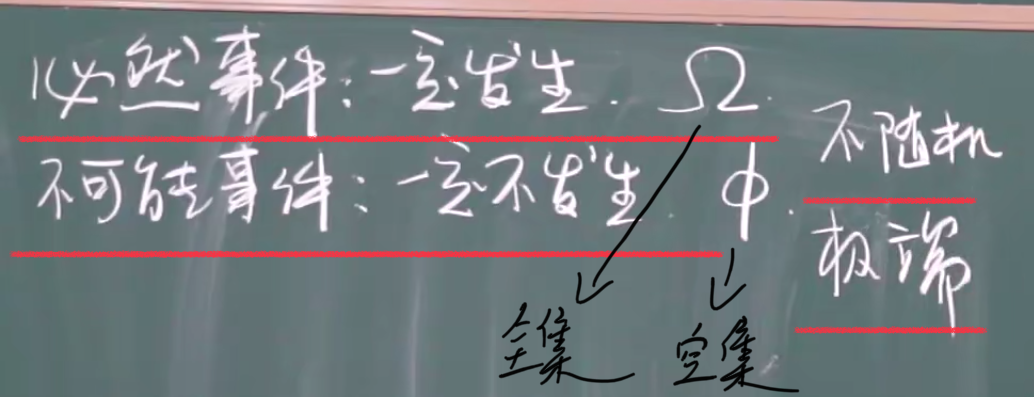 必然事件：一定发生．Ω．
不可能事件：一定不发生．φ．
不随机
极端
全集
空集